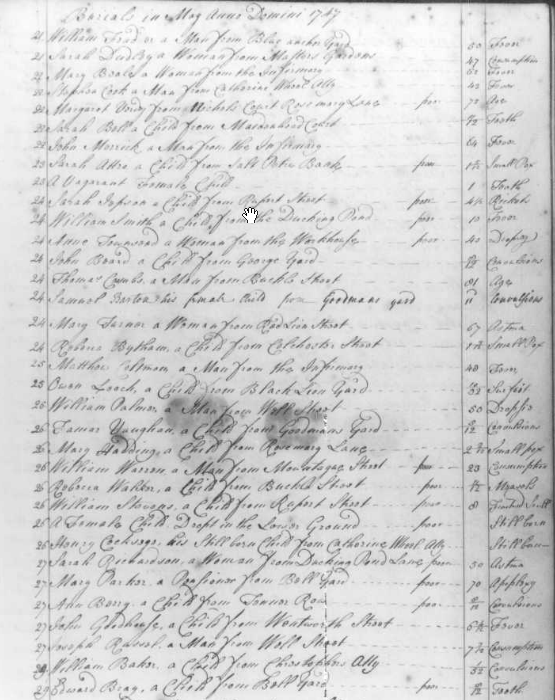 Burials in May Anno Domini 1747
21 William Ford a Man from Blue anchor Yard 50 Fever
21 Sarah Dudley a Woman from Gardens 47 Consumption
22 Mary Boale a Woman from the Infirmary Fever
Stephen Cook a Man from Catherine Wheel Ally 42 Fever
22 Margaret from Michels Court Rosemary Lane poor 72 Age
22 Sarah Bell a Child from Maidenhead Court Teeth
22 John Merrick a Man from the Infirmary 64 Fever
23 Sarah a Child from Salt Petre Bank poor Small Pox
23 A Vagarant Female Child 1 Teeth
24 Sarah Jepson a Child from Rupert Street poor Rickets
24 William Smith a Child from the Ducking Pond poor 10 Fever
24 Anne Townsend a Woman from the Workhouse poor 40 Dropsy
24 John Board a Child from George Yard Convulsions
24 Thomas Combs a Man from Buckle Street 81 Age
24 Samuel Barton his female Child from Goodmans yard Convultions
24 Mary Turner a Woman from Red Lion Street 67 Astma
24 Rebecca Bytham, a Child from Colchester Street Small Pox
25 Matthew a Man from the Infirmary 40 Fever
25 Owen Leech, a Child from Black Lion Yard Surfeit
26 William Palmer, a Man from Well Street 50 Dropsie
26 Tamer Vaughan, a Child from Goodmans Yard Convultions
26 Mary Harding, a Child from Rosemary Lane Small pox
26 William Warren, a Man from Mountague Street poor 23 Consumption
26 Rebecca Walker, a Child from Buckle Street poor
26 William Stevens, a Child from Rupert Street poor 8
25 A Female Child Dropt in the Lower Ground poor Still born
26 Henry his Still born Child from Catherine Wheel Ally Still born
27 Sarah Richardson, a Woman from Ducking Pond Lane poor 50 Astma
27 Mary Parker, a Pensioner from Bell Yard poor 70 Applexy
27 Ann Berry, a Child from Row poor Convultions
27 John a Child from Wentworth Street Fever
27 Joseph Russel, a Man from Well Street Consumption
29 William Baker, a Child from Christophers Ally Convultions
29 Edward Bray, a Child from Ball Yard poor Teeth